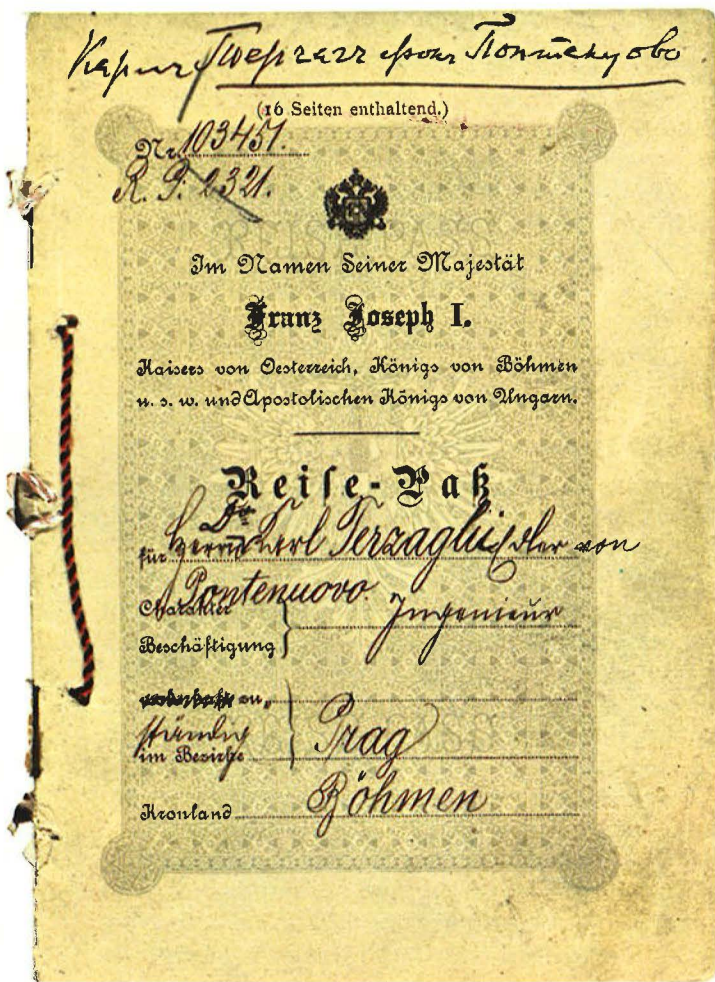 Карл Терцаги фон Понтенуово
(16 Seiten enthaltend.)
Nr. 103451.
R. P. 2321.
REISEPASS
Im Namen Seiner Majestät
Franz Joseph I.
Kaisers von Oesterreich, Königs von Böhmen
u. s. w. und Apostolischen Königs von Ungarn.
Reise-Paß
für Herrn Dr. Karl Terzaghi Edler von
Pontenuovo.
Charakter
Beschäftigung } Ingenieur
zu-
ständig
im Bezirke } Prag
Kronland Böhmen